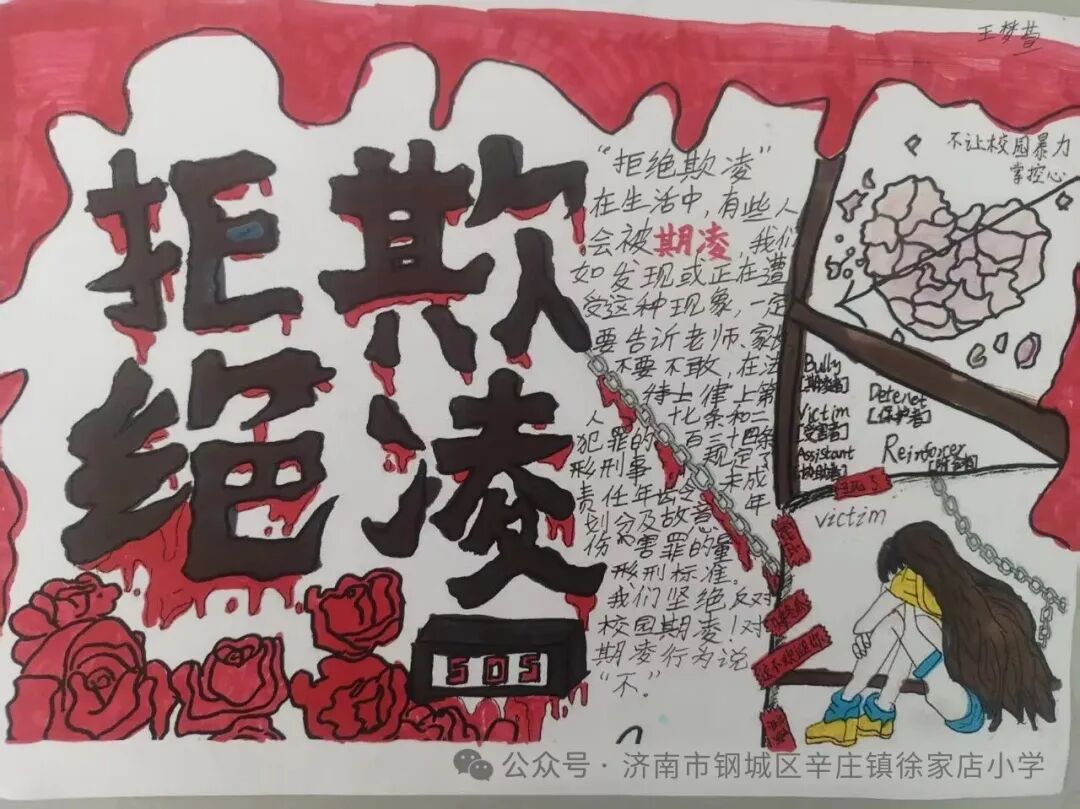 王梦萱
拒绝
欺凌
SOS
"拒绝欺凌"
在生活中,有些人
会被期凌,我们
如发现或正在遭
受这种现象,一定
要告诉老师、家长
不要不敢,在法
律上第
人 十七条和二
犯罪的 百三十四条
形刑事 规定了
责任年龄 未成年
划分及故意
伤害罪的量
形刑标准。
我们坚绝反对
校园期凌!对
期凌行为说
"不。"
不让校园暴力
掌控心
Bully
[期凌者]
Victim
[受害者]
Assistant
[协助者]
[保护者]
Reinforcer
victim
公众号·济南市钢城区辛庄镇徐家店小学